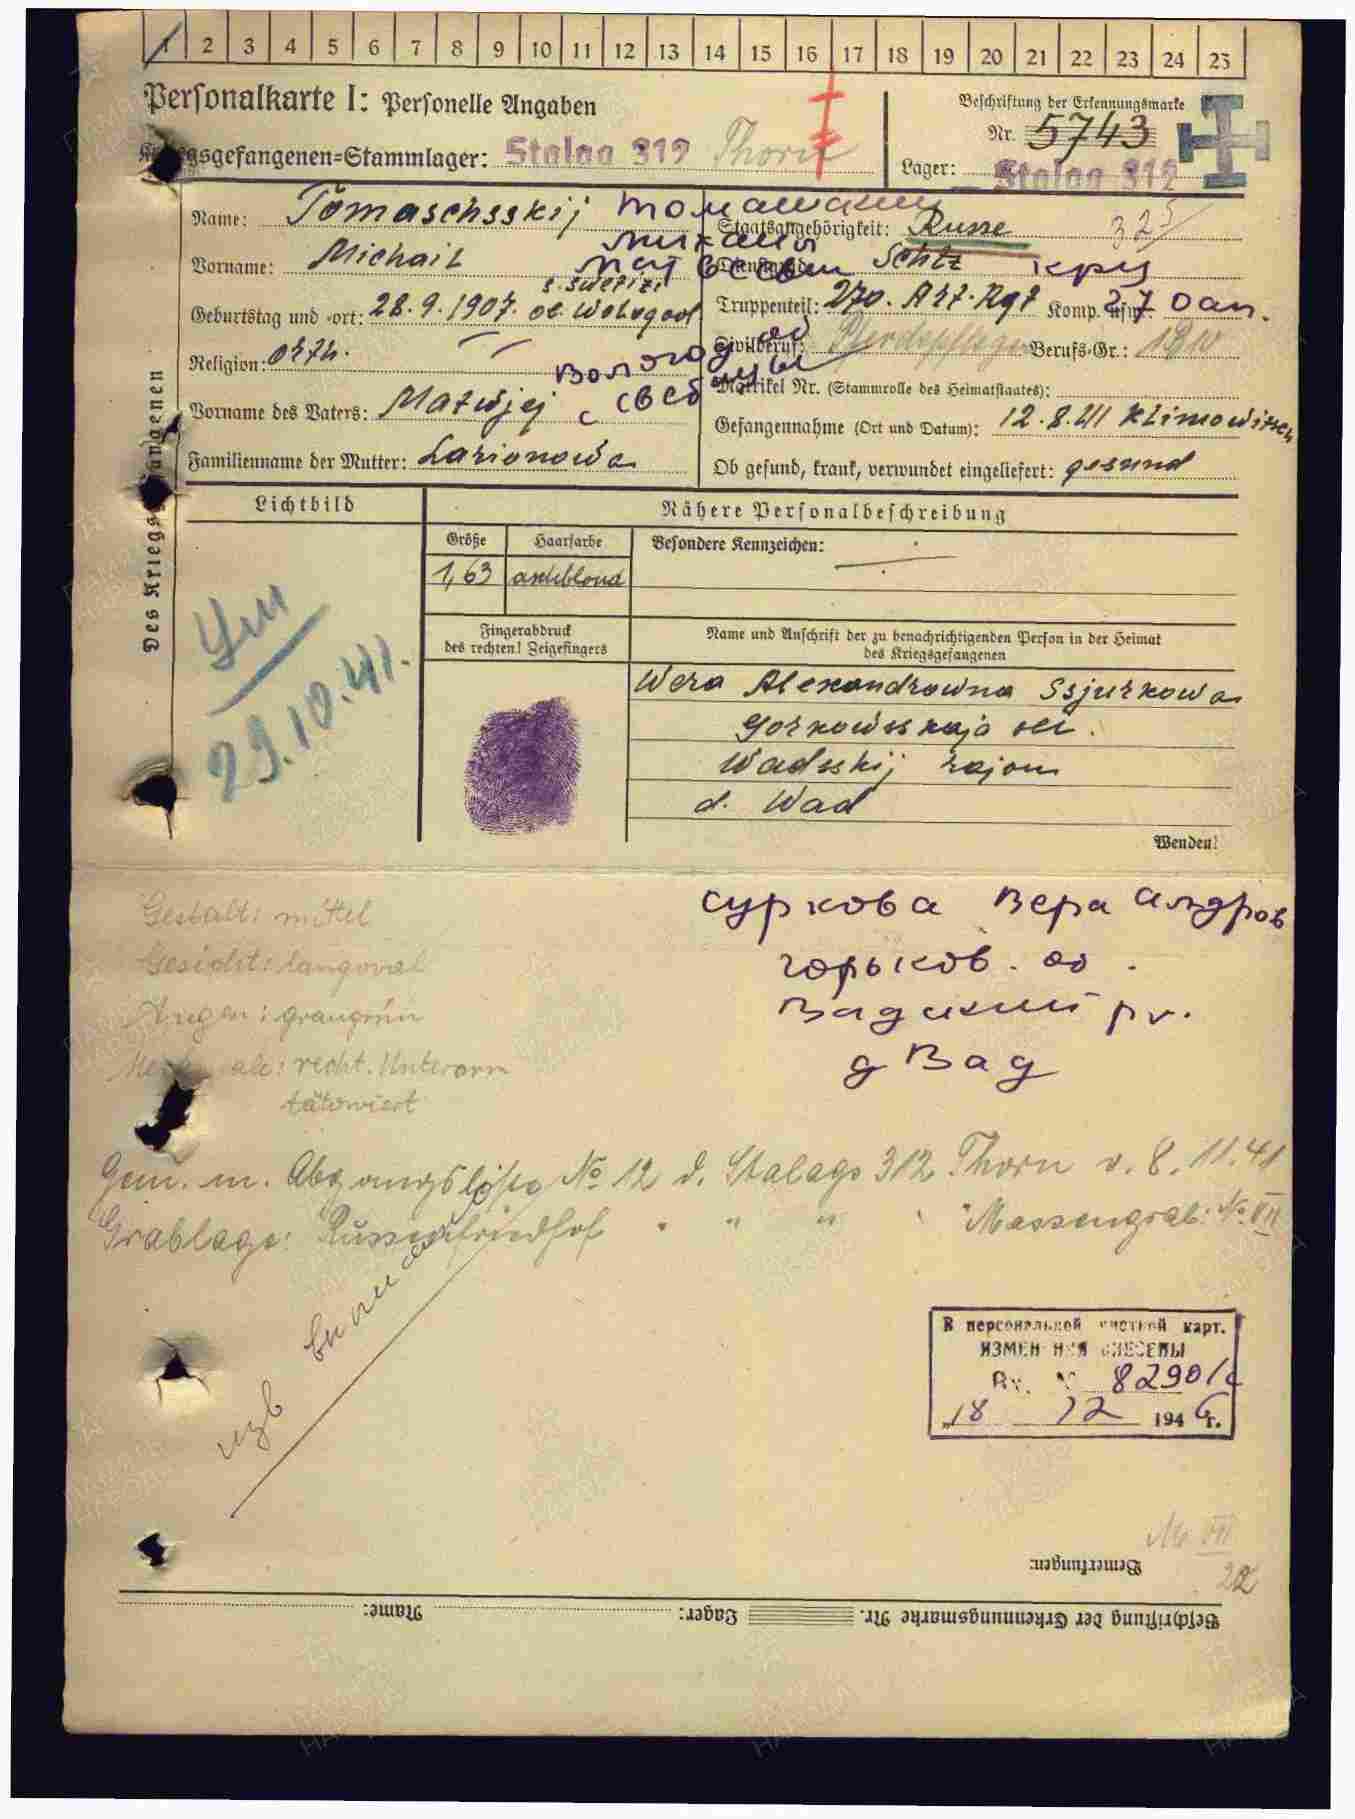 1 2 3 4 5 6 7 8 9 10 11 12 13 14 15 16 17 18 19 20 21 22 23 24 25
Personalkarte I: Personelle Angaben
Beschriftung der Erkennungsmarke
Nr. 5743
Kriegsgefangenen=Stammlager: Stalag 312 Thorn
Lager: Stalag 312
Des Kriegsgefangenen
Name: Tomaschsskij Томашский
Staatsangehörigkeit: Russe
Vorname: Michail Михаил
Матвеевич
Dienstgrad: Schtz крц
s. Swetizi
Geburtstag und -ort: 28.9.1907. ob. Wologod
Truppenteil: 270. Art. Rgt Komp. usw.: 27 оап.
Religion: orth.
Вологод об
Zivilberuf: Pferdepfleger Berufs-Gr.:
Matrikel Nr. (Stammrolle des Heimatstaates):
Vorname des Vaters: Matwjej
с
Gefangennahme (Ort und Datum): 12.8.41 Klimowitsch
Familienname der Mutter: Larionowa
Ob gesund, krank, verwundet eingeliefert: gesund
Lichtbild
Nähere Personalbeschreibung
Größe Haarfarbe Besondere Kennzeichen:
1,63 aschblond
Ум
29.10.41.
Fingerabdruck
des rechten! Zeigefingers
Name und Anschrift der zu benachrichtigenden Person in der Heimat
des Kriegsgefangenen
Wera Alexandrowna Ssjurkowa
Gorkowsskaja obl.
Wadsskij rajon
d. Wad
Wenden!
Gestalt: mittel
Gesicht: langoval
Augen: graugrün
recht. Unterarm
tätowiert
Суркова Вера Алдров
горьков. об.
Вадский
д Вад
Gem. m. Abgangsliste No 12 d. Stalags 312 Thorn v. 8.11.41
Grablage: Russenfriedhof " " " Massengrab: No. VII
изв
В персональной учетной карт.
ИЗМЕНЕНИЯ ВНЕСЕНЫ
Вх. № 8290/с
„18 12 1946 г.
VII
Bemerkungen:
Beschriftung der Erkennungsmarke Nr. Lager: Name: